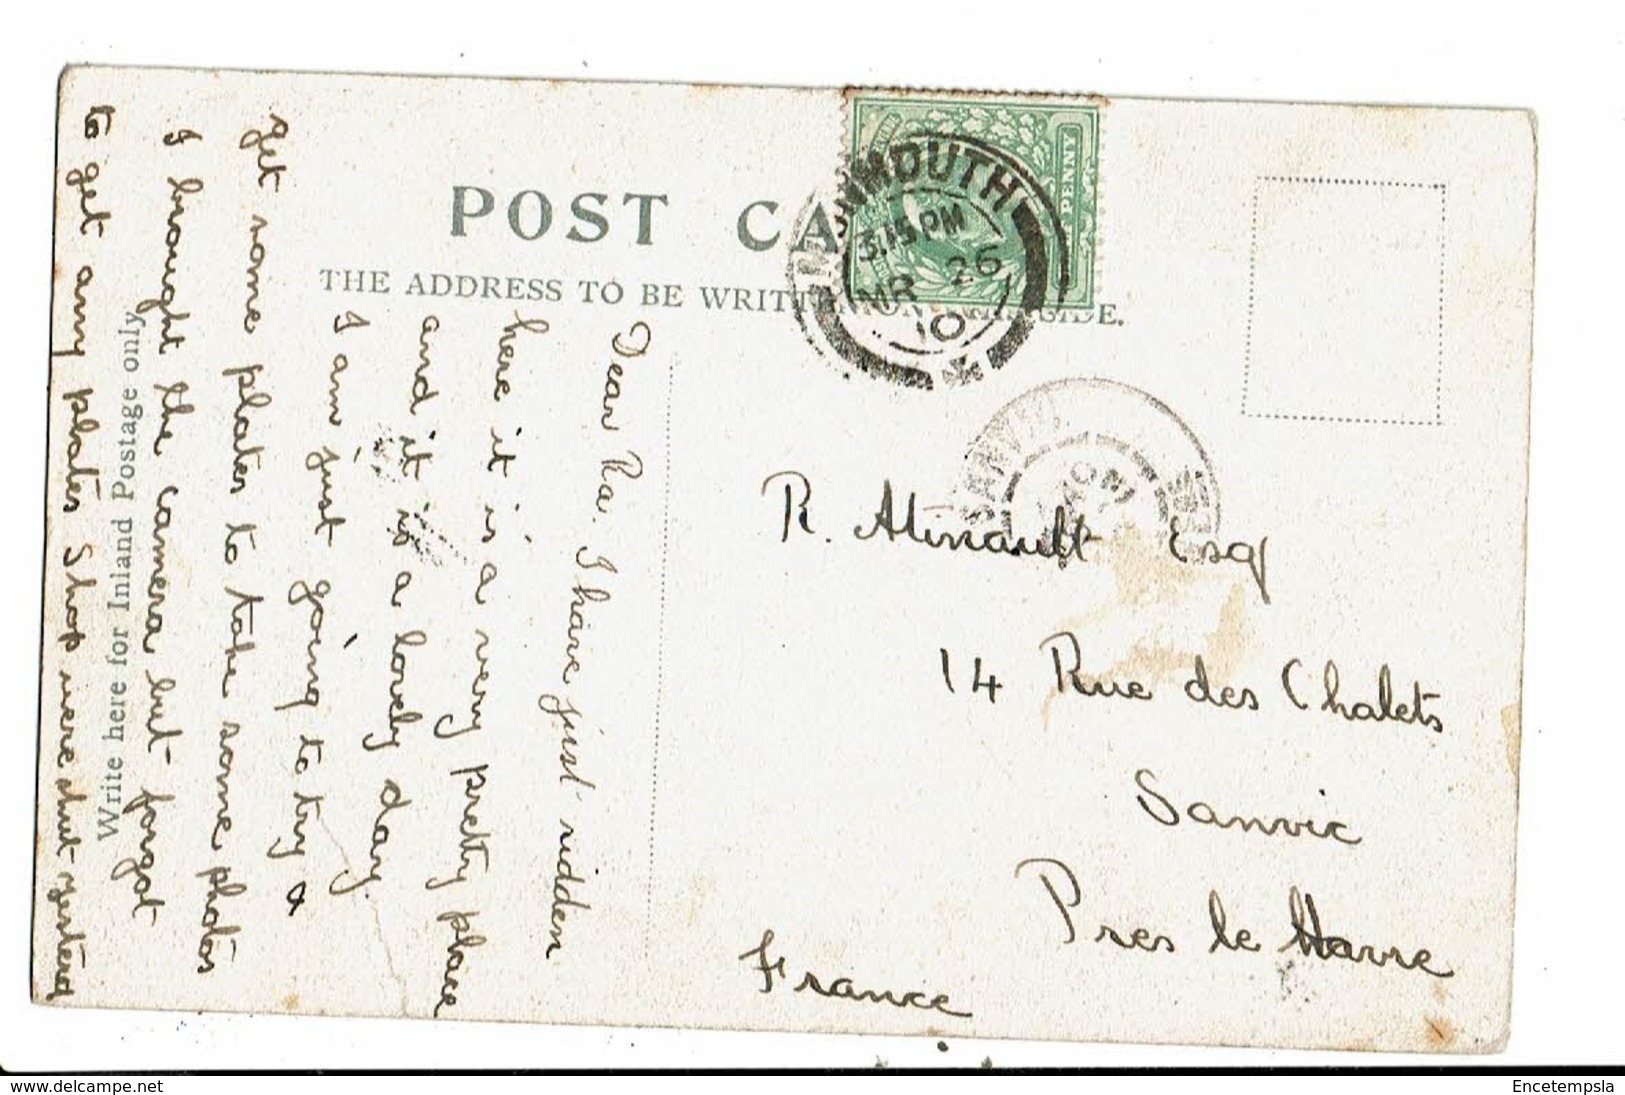 POST CA
THE ADDRESS TO BE WRITT
MONMOUTH
3.15 PM
MR 26
10
PENNY
SANVIC
Write here for Inland Postage only
Dear Ra. I have just ridden
here it is a very pretty place
and it is a lovely day.
I am just going to try &
get some plates to take some photos
I brought the camera but forgot
to get any plates Shop were shut yesterd
R. Atinault Esq
14 Rue des Chalets
Sanvic
Pres le Havre
France
delcampe.net
Encetempsla